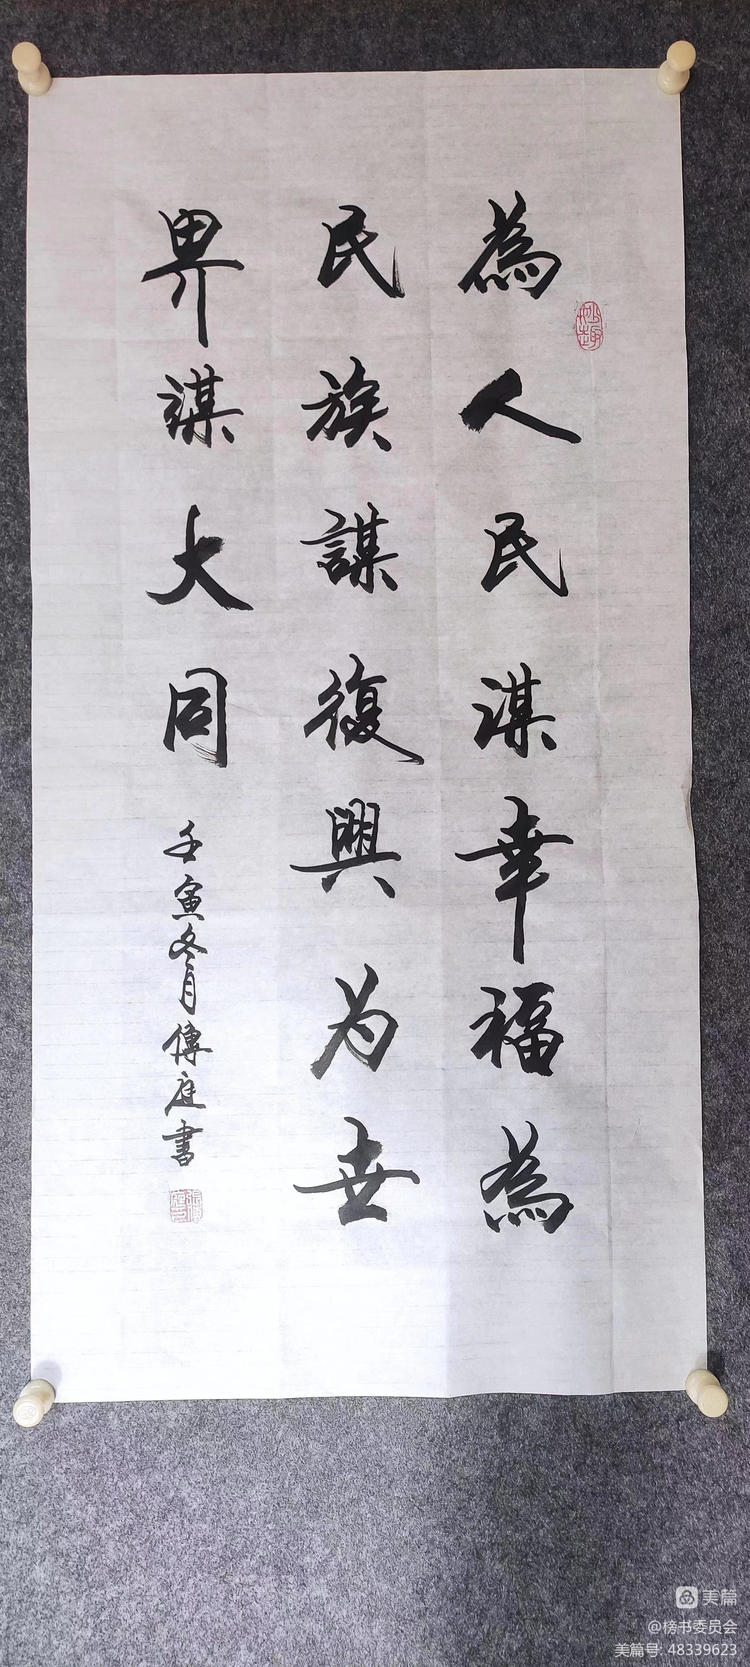 為人民谋幸福為
民族謀復興为世
界谋大同
壬寅冬月傅庭書
美篇
@榜书委员会
美篇号: 48339623